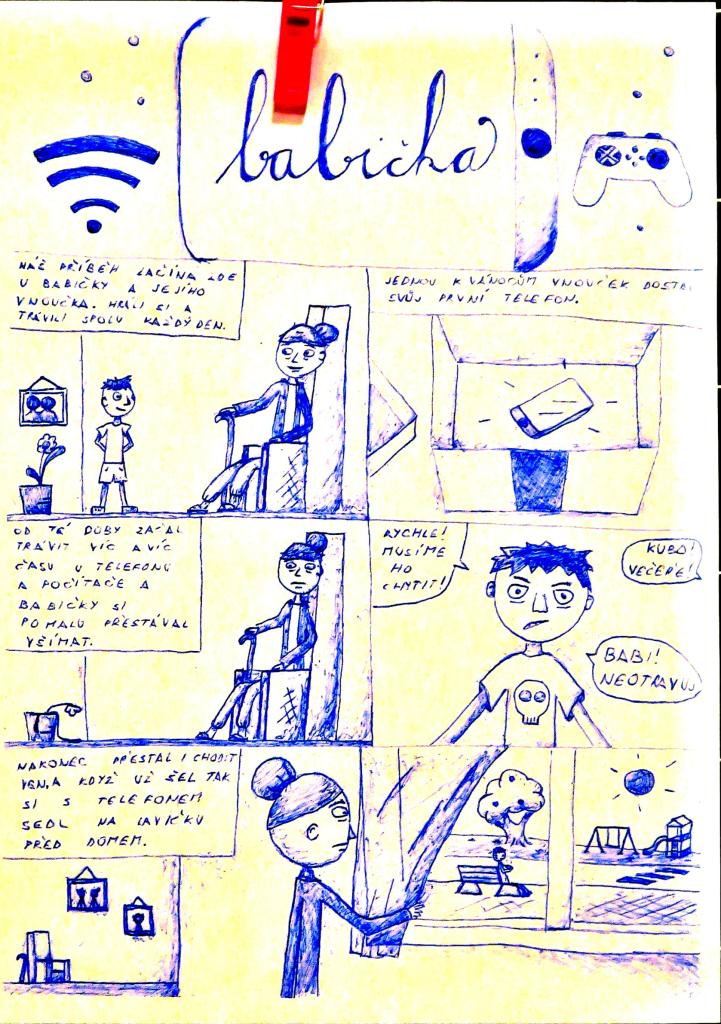 babička
NÁŠ PŘÍBĚH ZAČÍNÁ ZDE
U BABIČKY A JEJÍHO
VNOUČKA. HRÁLI SI A
TRÁVILI SPOLU KAŽDÝ DEN.
JEDNOU K VÁNOCŮM VNOUČEK DOSTAL
SVŮJ PRVNÍ TELEFON.
OD TÉ DOBY ZAČAL
TRÁVIT VÍC A VÍC
ČASU U TELEFONU
A POČÍTAČE A
BABIČKY SI
POMALU PŘESTÁVAL
VŠÍMAT.
RYCHLE!
MUSÍME
HO
CHYTIT!
KUBO!
VEČEŘE!
BABI!
NEOTRAVUJ
NAKONEC PŘESTAL I CHODIT
VEN, A KDYŽ UŽ ŠEL TAK
SI S TELEFONEM
SEDL NA LAVIČKU
PŘED DOMEM.